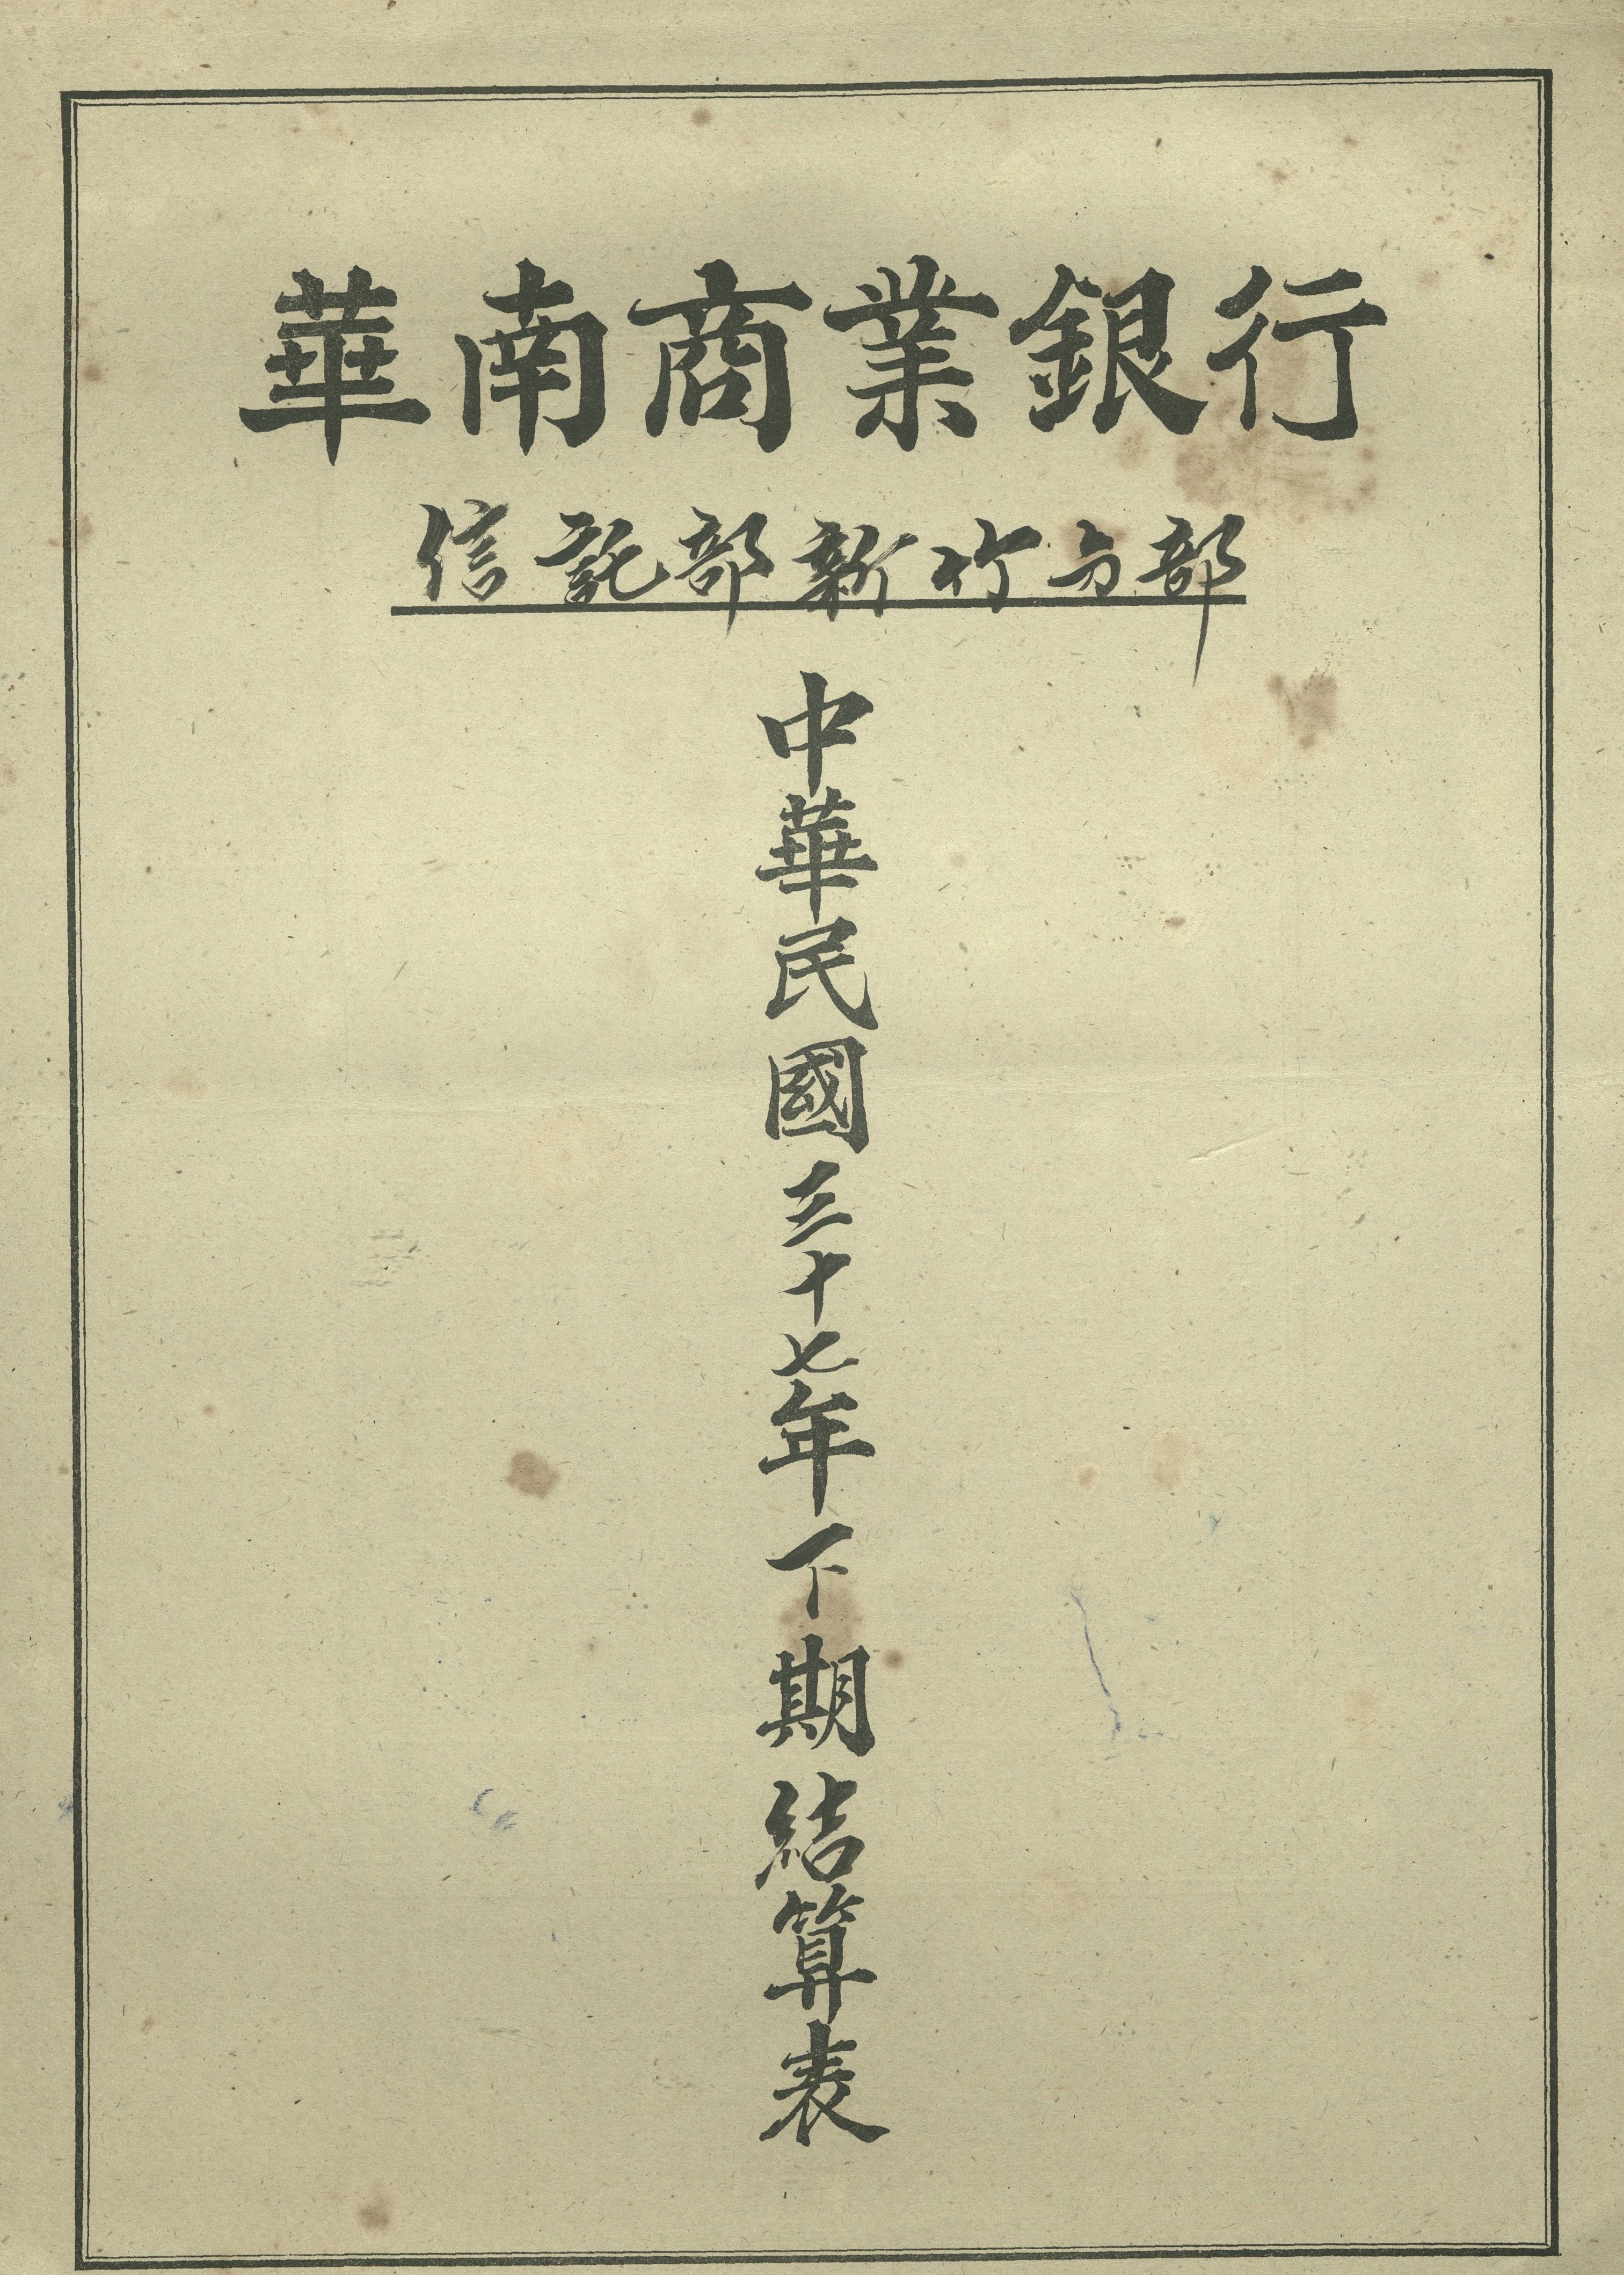 華南商業銀行
信託部新竹分部
中華民國三十七年下期結算表